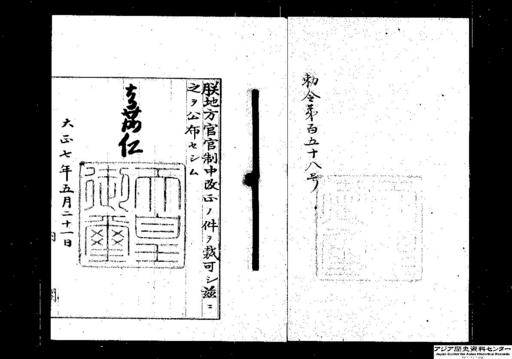 勅令第百五十八号
朕地方官官制中改正ノ件ヲ裁可シ茲ニ
之ヲ公布セシム
嘉仁
天皇御璽
大正七年五月二十一日
アジア歴史資料センター
Japan Center for Asian Historical Records